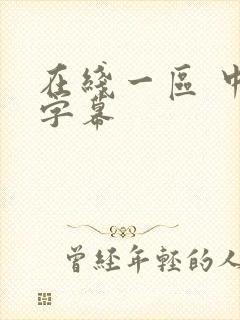 在綫一區 中
字幕
曾經年輕的人